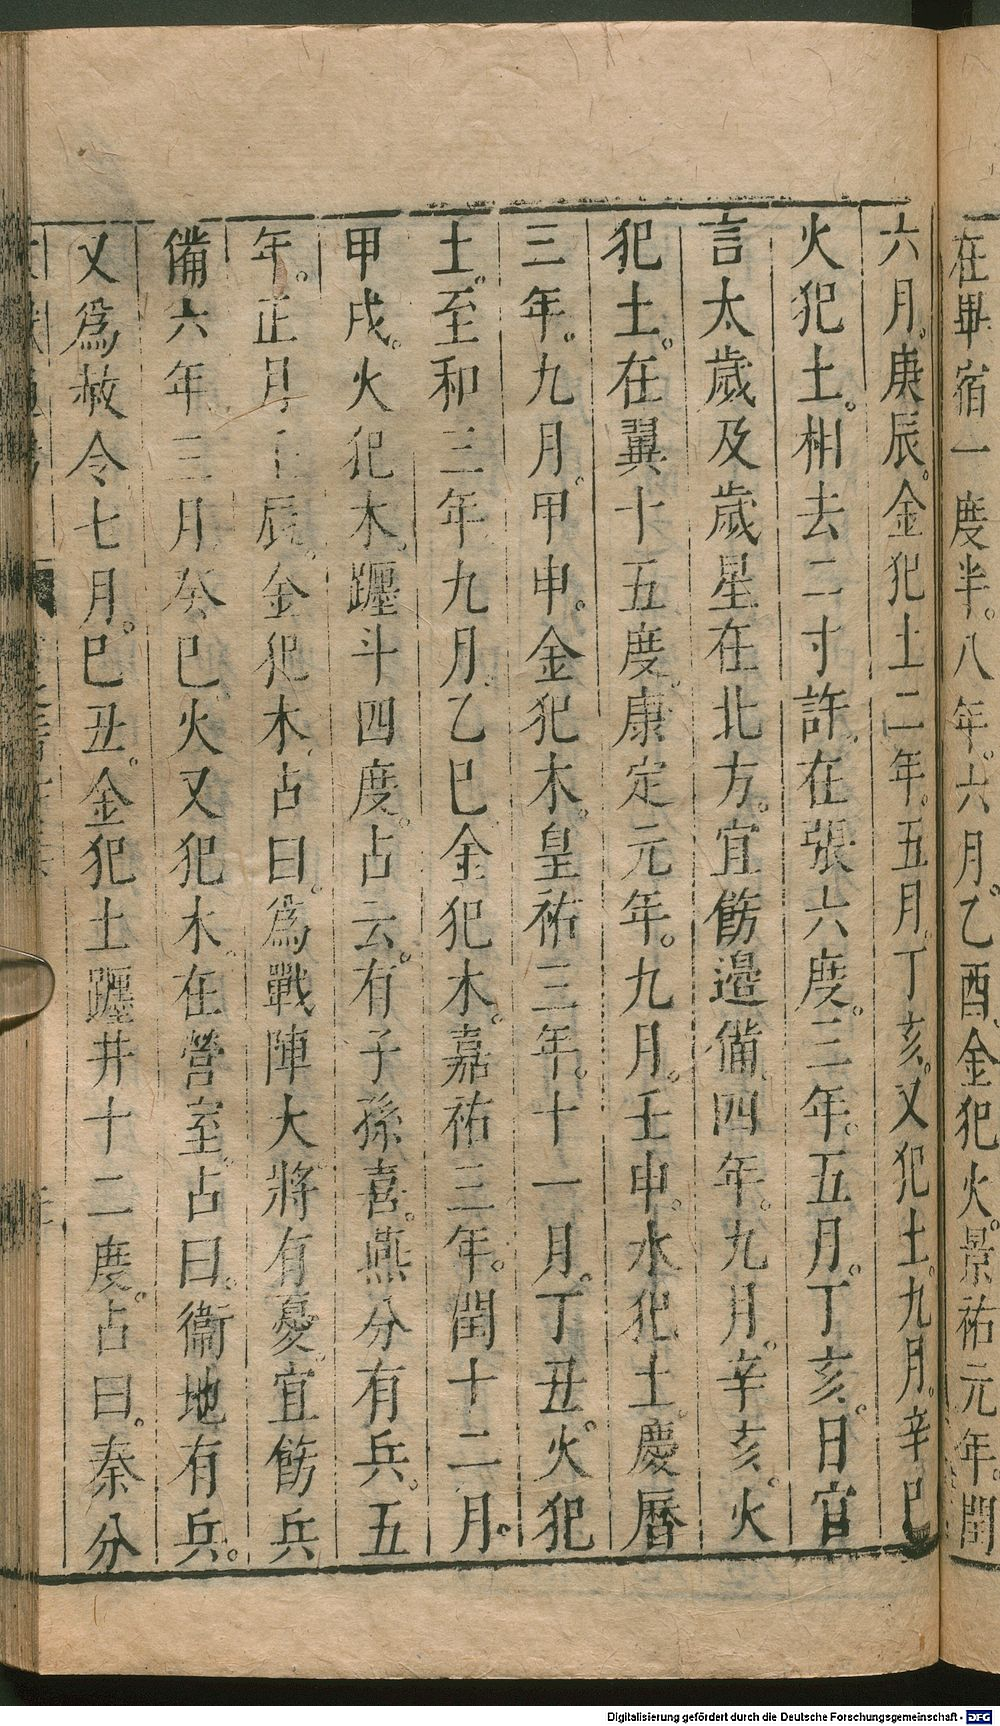 在畢宿一度半。八年。六月。乙酉。金犯火。景祐元年。閏
六月。庚辰。金犯土二年。五月丁亥。又犯土。九月。辛巳
火犯土。相去二寸許。在張六度。三年。五月。丁亥。日官
言太歲及歲星在北方。宜飭邊備。四年。九月。辛亥。火
犯土。在翼十五度。康定元年。九月。壬申。水犯土。慶曆
三年。九月。甲申。金犯木。皇祐三年。十一月。丁丑。火犯
土。至和三年九月。乙巳金犯木。嘉祐三年。閏十二月。
甲戌。火犯木。躔斗四度。占云。有子孫喜。燕分有兵。五
年。正月壬辰。金犯木。占曰。爲戰陣大將有憂。宜飭兵
備六年三月癸巳。火又犯木。在營室。占曰。衞地有兵。
又爲赦令七月。巳丑。金犯土躔井十二度。占曰。秦分
Digitalisierung gefördert durch die Deutsche Forschungsgemeinschaft - DFG